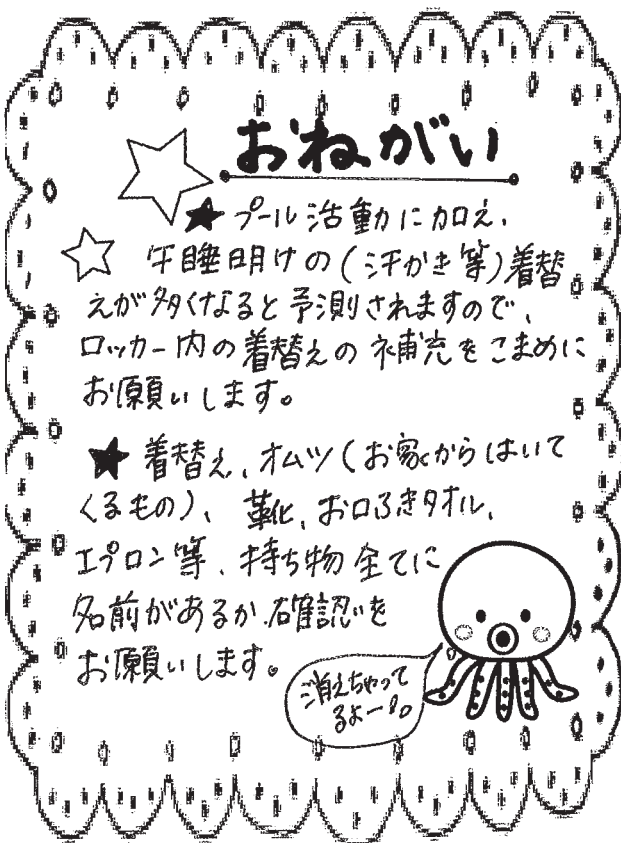 おねがい
★プール活動に加え、
午睡明けの(汗かき等)着替
えが多くなると予測されますので、
ロッカー内の着替えの補充をこまめに
お願いします。
★着替え、オムツ(お家からはいて
くるもの)、靴、お口ふきタオル、
エプロン等、持ち物全てに
名前があるか確認を
お願いします。
消えちゃって
るよー!。